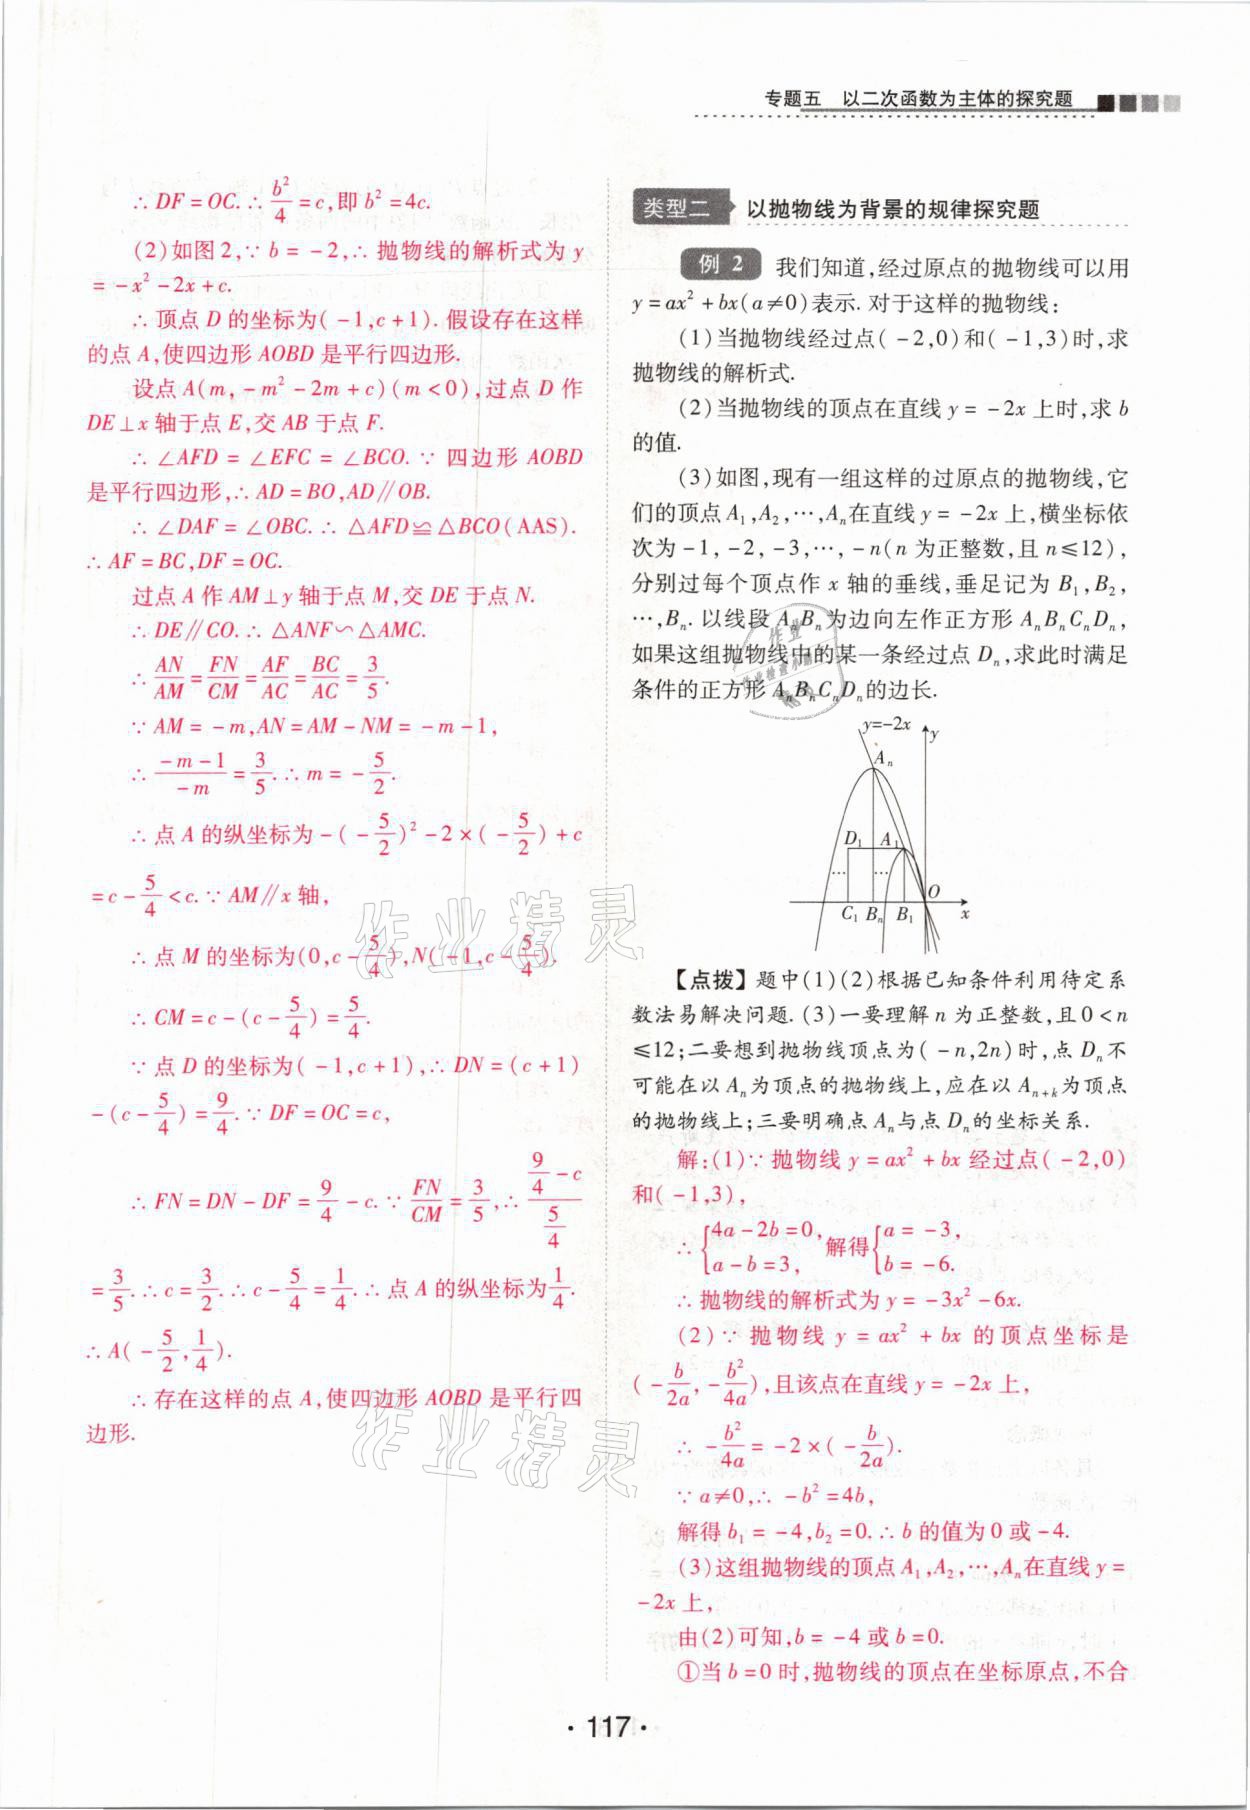 专题五 以二次函数为主体的探究题
∴ DF = OC. ∴ b²/4 = c, 即 b² = 4c.
(2)如图2, ∵ b = -2, ∴ 抛物线的解析式为 y
= -x² - 2x + c.
∴ 顶点 D 的坐标为( -1, c+1). 假设存在这样
的点 A, 使四边形 AOBD 是平行四边形.
设点 A(m, -m² - 2m + c)(m < 0), 过点 D 作
DE⊥x 轴于点 E, 交 AB 于点 F.
∴ ∠AFD = ∠EFC = ∠BCO. ∵ 四边形 AOBD
是平行四边形, ∴ AD = BO, AD∥OB.
∴ ∠DAF = ∠OBC. ∴ △AFD≌△BCO(AAS).
∴ AF = BC, DF = OC.
过点 A 作 AM⊥y 轴于点 M, 交 DE 于点 N.
∴ DE∥CO. ∴ △ANF∽△AMC.
∴ AN/AM = FN/CM = AF/AC = BC/AC = 3/5.
∵ AM = -m, AN = AM - NM = -m - 1,
∴ (-m-1)/(-m) = 3/5. ∴ m = -5/2.
∴ 点 A 的纵坐标为 -(-5/2)² - 2×(-5/2) + c
= c - 5/4 < c. ∵ AM∥x 轴,
∴ 点 M 的坐标为(0, c - 5/4), N(-1, c - 5/4).
∴ CM = c - (c - 5/4) = 5/4.
∵ 点 D 的坐标为( -1, c+1), ∴ DN = (c+1)
-(c - 5/4) = 9/4. ∵ DF = OC = c,
∴ FN = DN - DF = 9/4 - c. ∵ FN/CM = 3/5, ∴ (9/4 - c)/(5/4)
= 3/5. ∴ c = 3/2. ∴ c - 5/4 = 1/4. ∴ 点 A 的纵坐标为 1/4.
∴ A(-5/2, 1/4).
∴ 存在这样的点 A, 使四边形 AOBD 是平行四
边形.
类型二 以抛物线为背景的规律探究题
例 2 我们知道,经过原点的抛物线可以用
y = ax² + bx(a≠0)表示. 对于这样的抛物线:
(1)当抛物线经过点( -2,0)和( -1,3)时,求
抛物线的解析式.
(2)当抛物线的顶点在直线 y = -2x 上时,求 b
的值.
(3)如图,现有一组这样的过原点的抛物线,它
们的顶点 A₁, A₂, …, Aₙ在直线 y = -2x 上,横坐标依
次为 -1, -2, -3, …, -n(n 为正整数,且 n≤12),
分别过每个顶点作 x 轴的垂线,垂足记为 B₁, B₂,
…, Bₙ. 以线段 AₙBₙ为边向左作正方形 AₙBₙCₙDₙ,
如果这组抛物线中的某一条经过点 Dₙ,求此时满足
条件的正方形 AₙBₙCₙDₙ的边长.
y=-2x
y
Aₙ
D₁ A₁
… …
O
C₁ Bₙ B₁ x
【点拨】题中(1)(2)根据已知条件利用待定系
数法易解决问题. (3)一要理解 n 为正整数,且 0 < n
≤12;二要想到抛物线顶点为( -n,2n)时,点 Dₙ不
可能在以 Aₙ为顶点的抛物线上,应在以 Aₙ₊ₖ为顶点
的抛物线上;三要明确点 Aₙ与点 Dₙ的坐标关系.
解:(1)∵ 抛物线 y = ax² + bx 经过点( -2,0)
和( -1,3),
∴ {4a - 2b = 0, a - b = 3, 解得 {a = -3, b = -6.
∴ 抛物线的解析式为 y = -3x² - 6x.
(2)∵ 抛物线 y = ax² + bx 的顶点坐标是
(-b/2a, -b²/4a), 且该点在直线 y = -2x 上,
∴ -b²/4a = -2×(-b/2a).
∵ a≠0, ∴ -b² = 4b,
解得 b₁ = -4, b₂ = 0. ∴ b 的值为 0 或 -4.
(3)这组抛物线的顶点 A₁, A₂, …, Aₙ在直线 y =
-2x 上,
由(2)可知, b = -4 或 b = 0.
①当 b = 0 时,抛物线的顶点在坐标原点,不合
· 117 ·
作业精灵
作业精灵